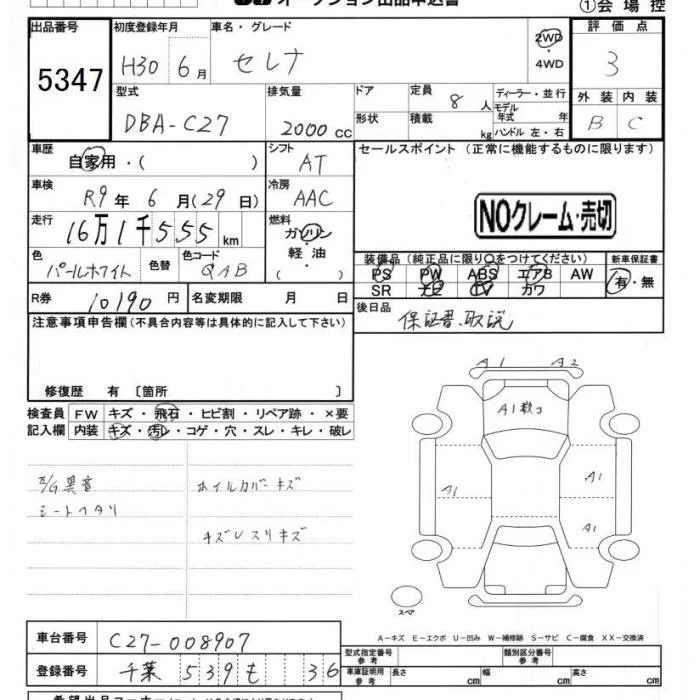 オークション出品申込書
①会場控
出品番号
5347
初度登録年月
H30 6月
車名・グレード
セレナ
2WD
・
4WD
評価点
3
型式
DBA-C27
排気量
2000 cc
ドア
形状
定員 8 人
積載 kg
ディーラー・並行
モデル
年式 年
ハンドル 左・右
外装 内装
B C
車歴
自家用・( )
シフト
AT
セールスポイント (正常に機能するものに限ります)
車検
R9年 6月(29日)
冷房
AAC
NOクレーム・売切
走行
16万1千555km
燃料
ガソリン
軽油
( )
色
パールホワイト
色替
色コード
QAB
装備品(純正品に限り○をつけてください)
新車保証書
PS PW ABS エアB AW
SR ナビ TV カワ
有・無
R券 10190円
名変期限 月 日
後日品
保証書、取説
注意事項申告欄(不具合内容等は具体的に記入して下さい)
修復歴 有 〔箇所 〕
検査員
記入欄
FW キズ・飛石・ヒビ割・リペア跡・×要
内装 キズ・汚レ・コゲ・穴・スレ・キレ・破レ
E/G異音
シートヘタリ
ホイルカバーキズ
キズUスリキズ
A1 A2
A1
A1
A1
A1
スペア
A-キズ E-エクボ U-凹み W-補修跡 S-サビ C-腐食 XX-交換済
車台番号 C27-008907
登録番号 千葉 539 も 36
型式指定番号
参考
類別区分番号
参考
車庫証明用
参考
長さ cm
幅 cm
高さ cm